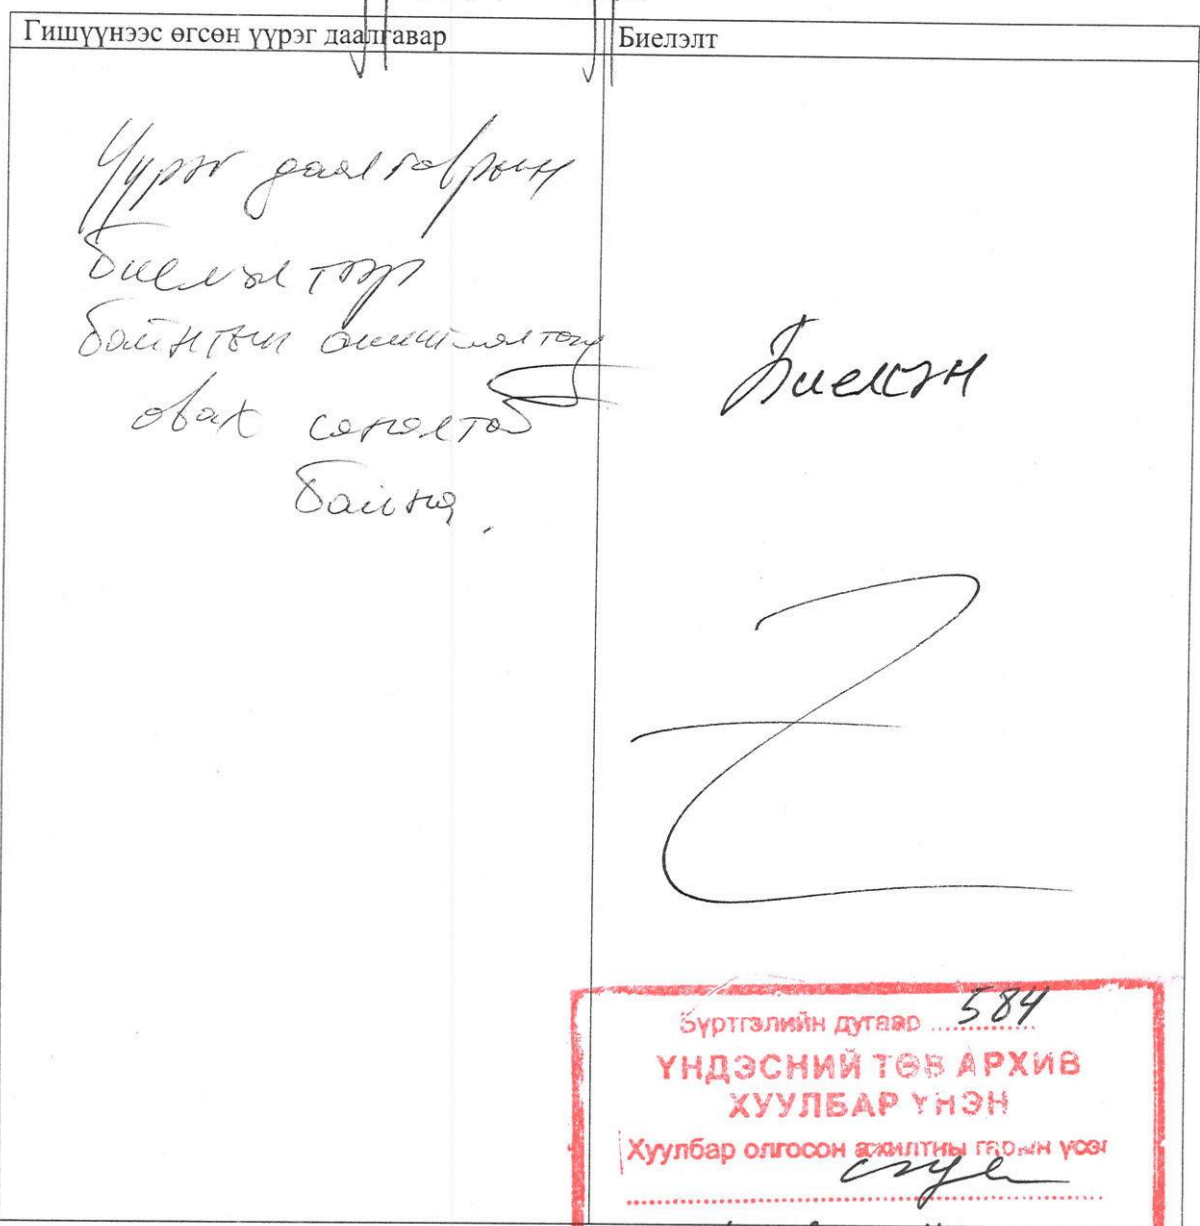 Гишүүнээс өгсөн үүрэг даалгавар
Биелэлт
Үүрэг даалгаврын
биелэлтээр
байнгын ажиллалтаа
авах саналтай
байна.
Биелсэн
Бүртгэлийн дугаар ........ 584
ҮНДЭСНИЙ ТӨВ АРХИВ
ХУУЛБАР ҮНЭН
Хуулбар олгосон ажилтны гарын үсэг